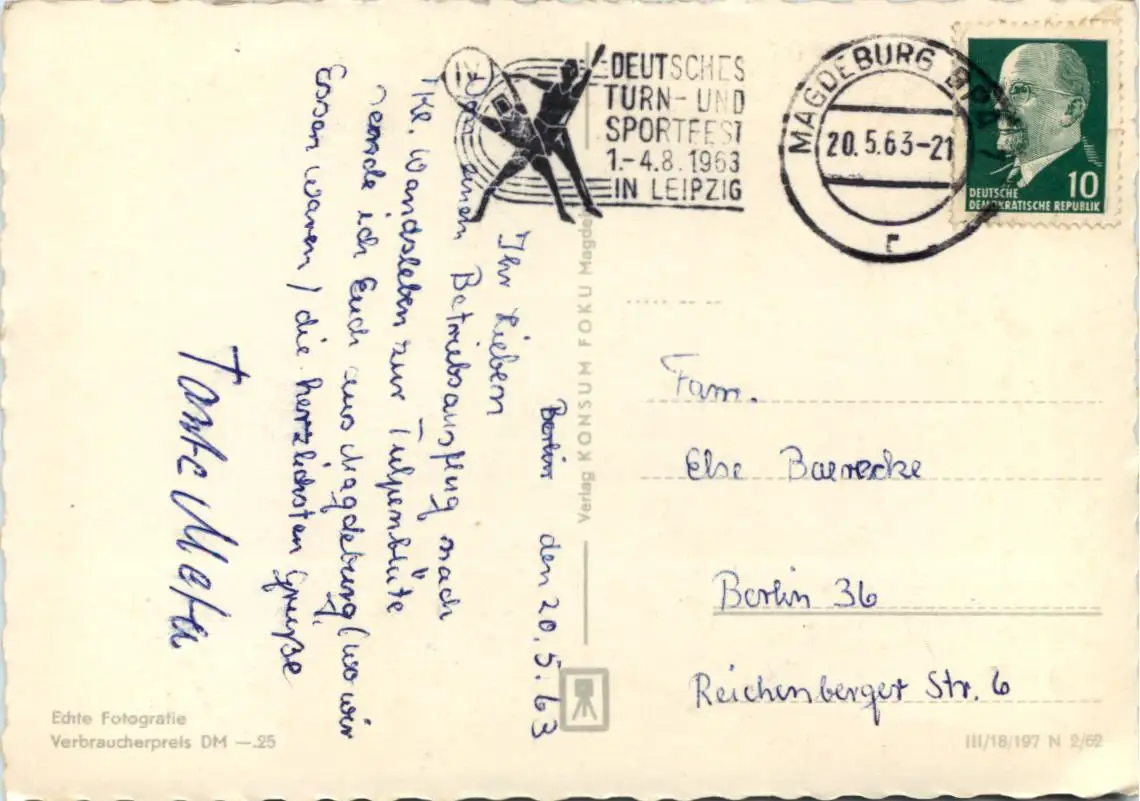 DEUTSCHES
TURN- UND
SPORTFEST
1.-4.8.1963
IN LEIPZIG
MAGDEBURG BPA
20.5.63-21
r
10
DEUTSCHE
DEMOKRATISCHE REPUBLIK
Berlin den 20.5.63
Ihr Lieben
Von einem Betriebsausflug nach
Kl. Wandsleben zur Tulpenblüte
sende ich Euch aus Magdeburg (wo wir
z. Essen waren) die herzlichsten Grüße
Tante Meta
Verlag KONSUM FOKU Magde
Fam.
Else Baerecke
Berlin 36
Reichenberger Str. 6
Echte Fotografie
Verbraucherpreis DM —.25
III/18/197 N 2/62